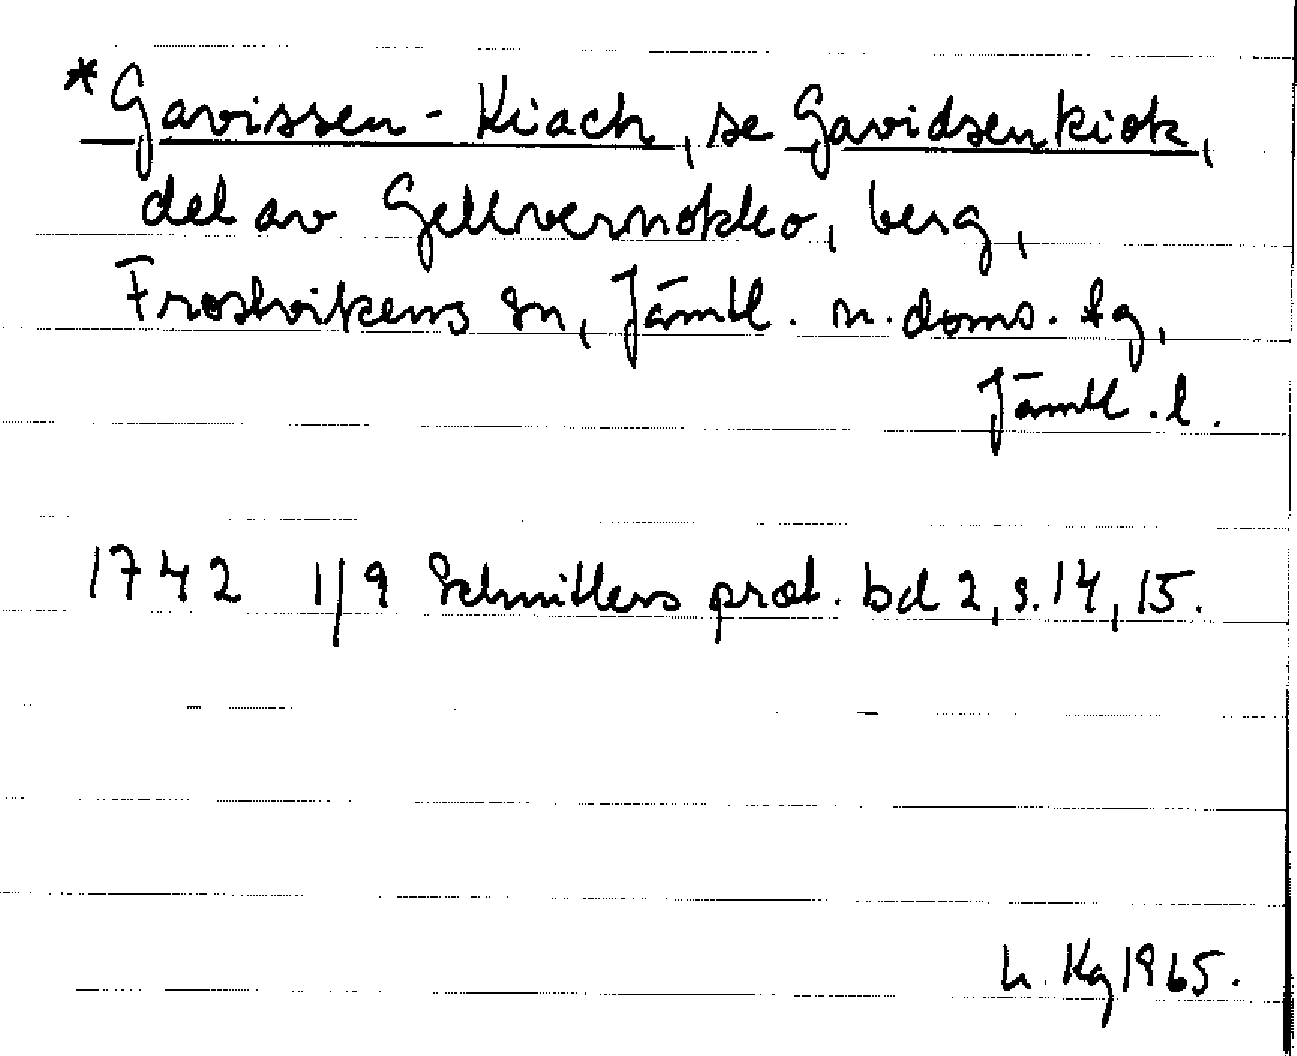 *Gavissen-Kiach, se Gavidsenkiok,
del av Gellvernokko, berg,
Frostvikens sn, Jämtl. n. doms. tg,
Jämtl. l.
1742 1/9 Schnitlers prot. bd 2, s. 14, 15.
L. Kg 1965.